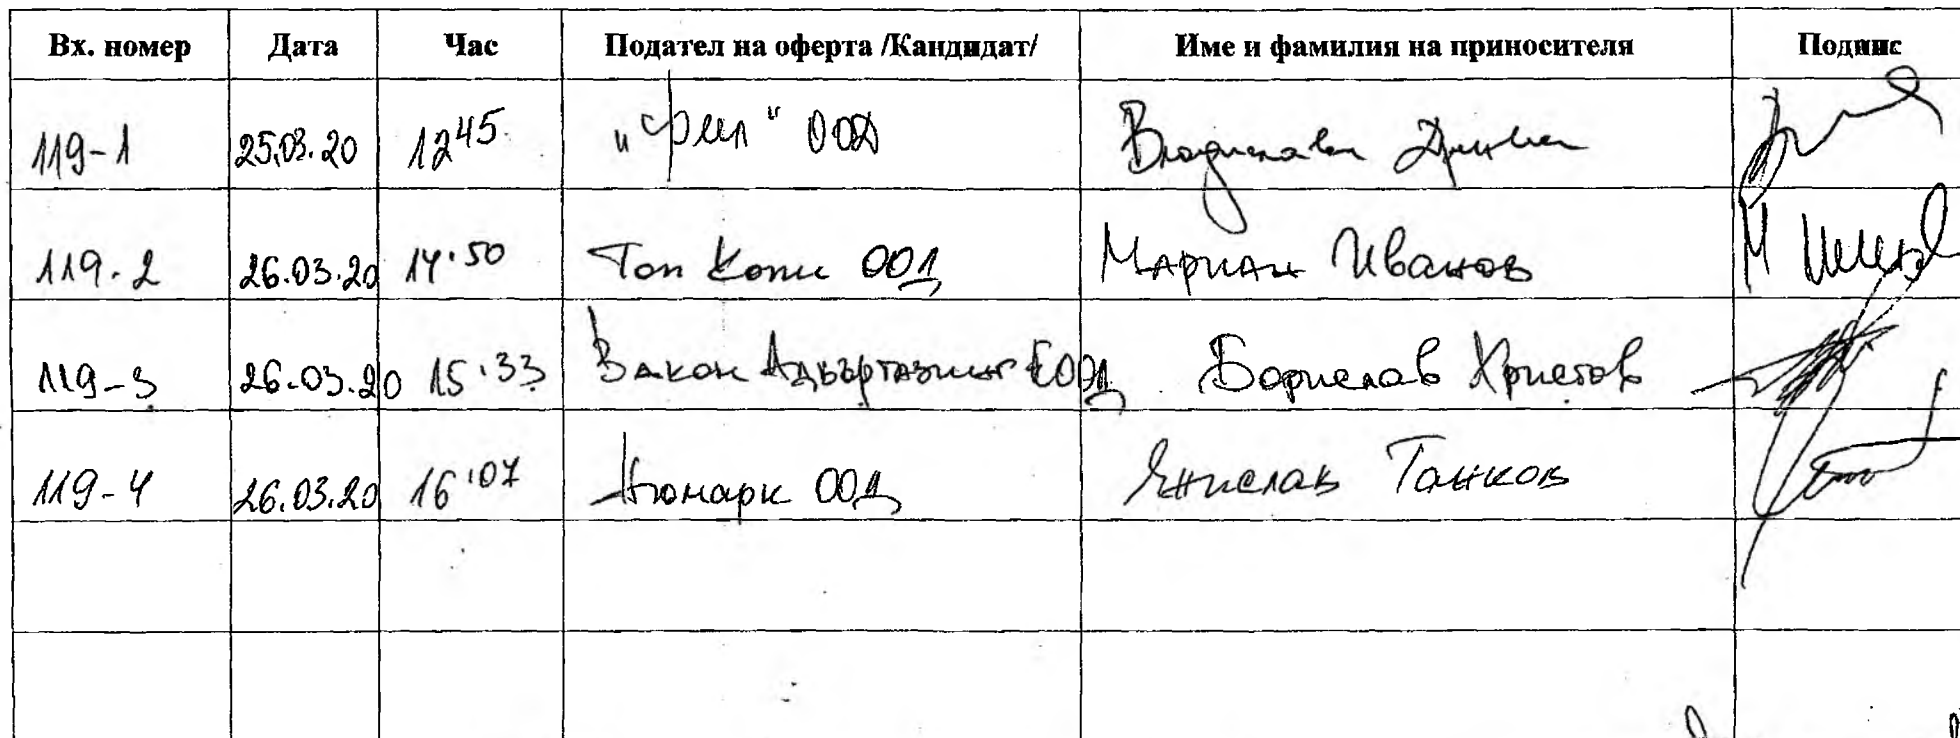 Вх. номер Дата Час Подател на оферта /Кандидат/ Име и фамилия на приносителя Подпис
119-1 25.03.20 12 45 "Фил" ООД
119.2 26.03.20 14.50 Топ Копи ООД Мариан Иванов
119-3 26.03.20 15.33 Вакон Адвъртазинг ЕООД Борислав Христов
119-4 26.03.20 16.07 Нюмарк ООД Янислав Танков